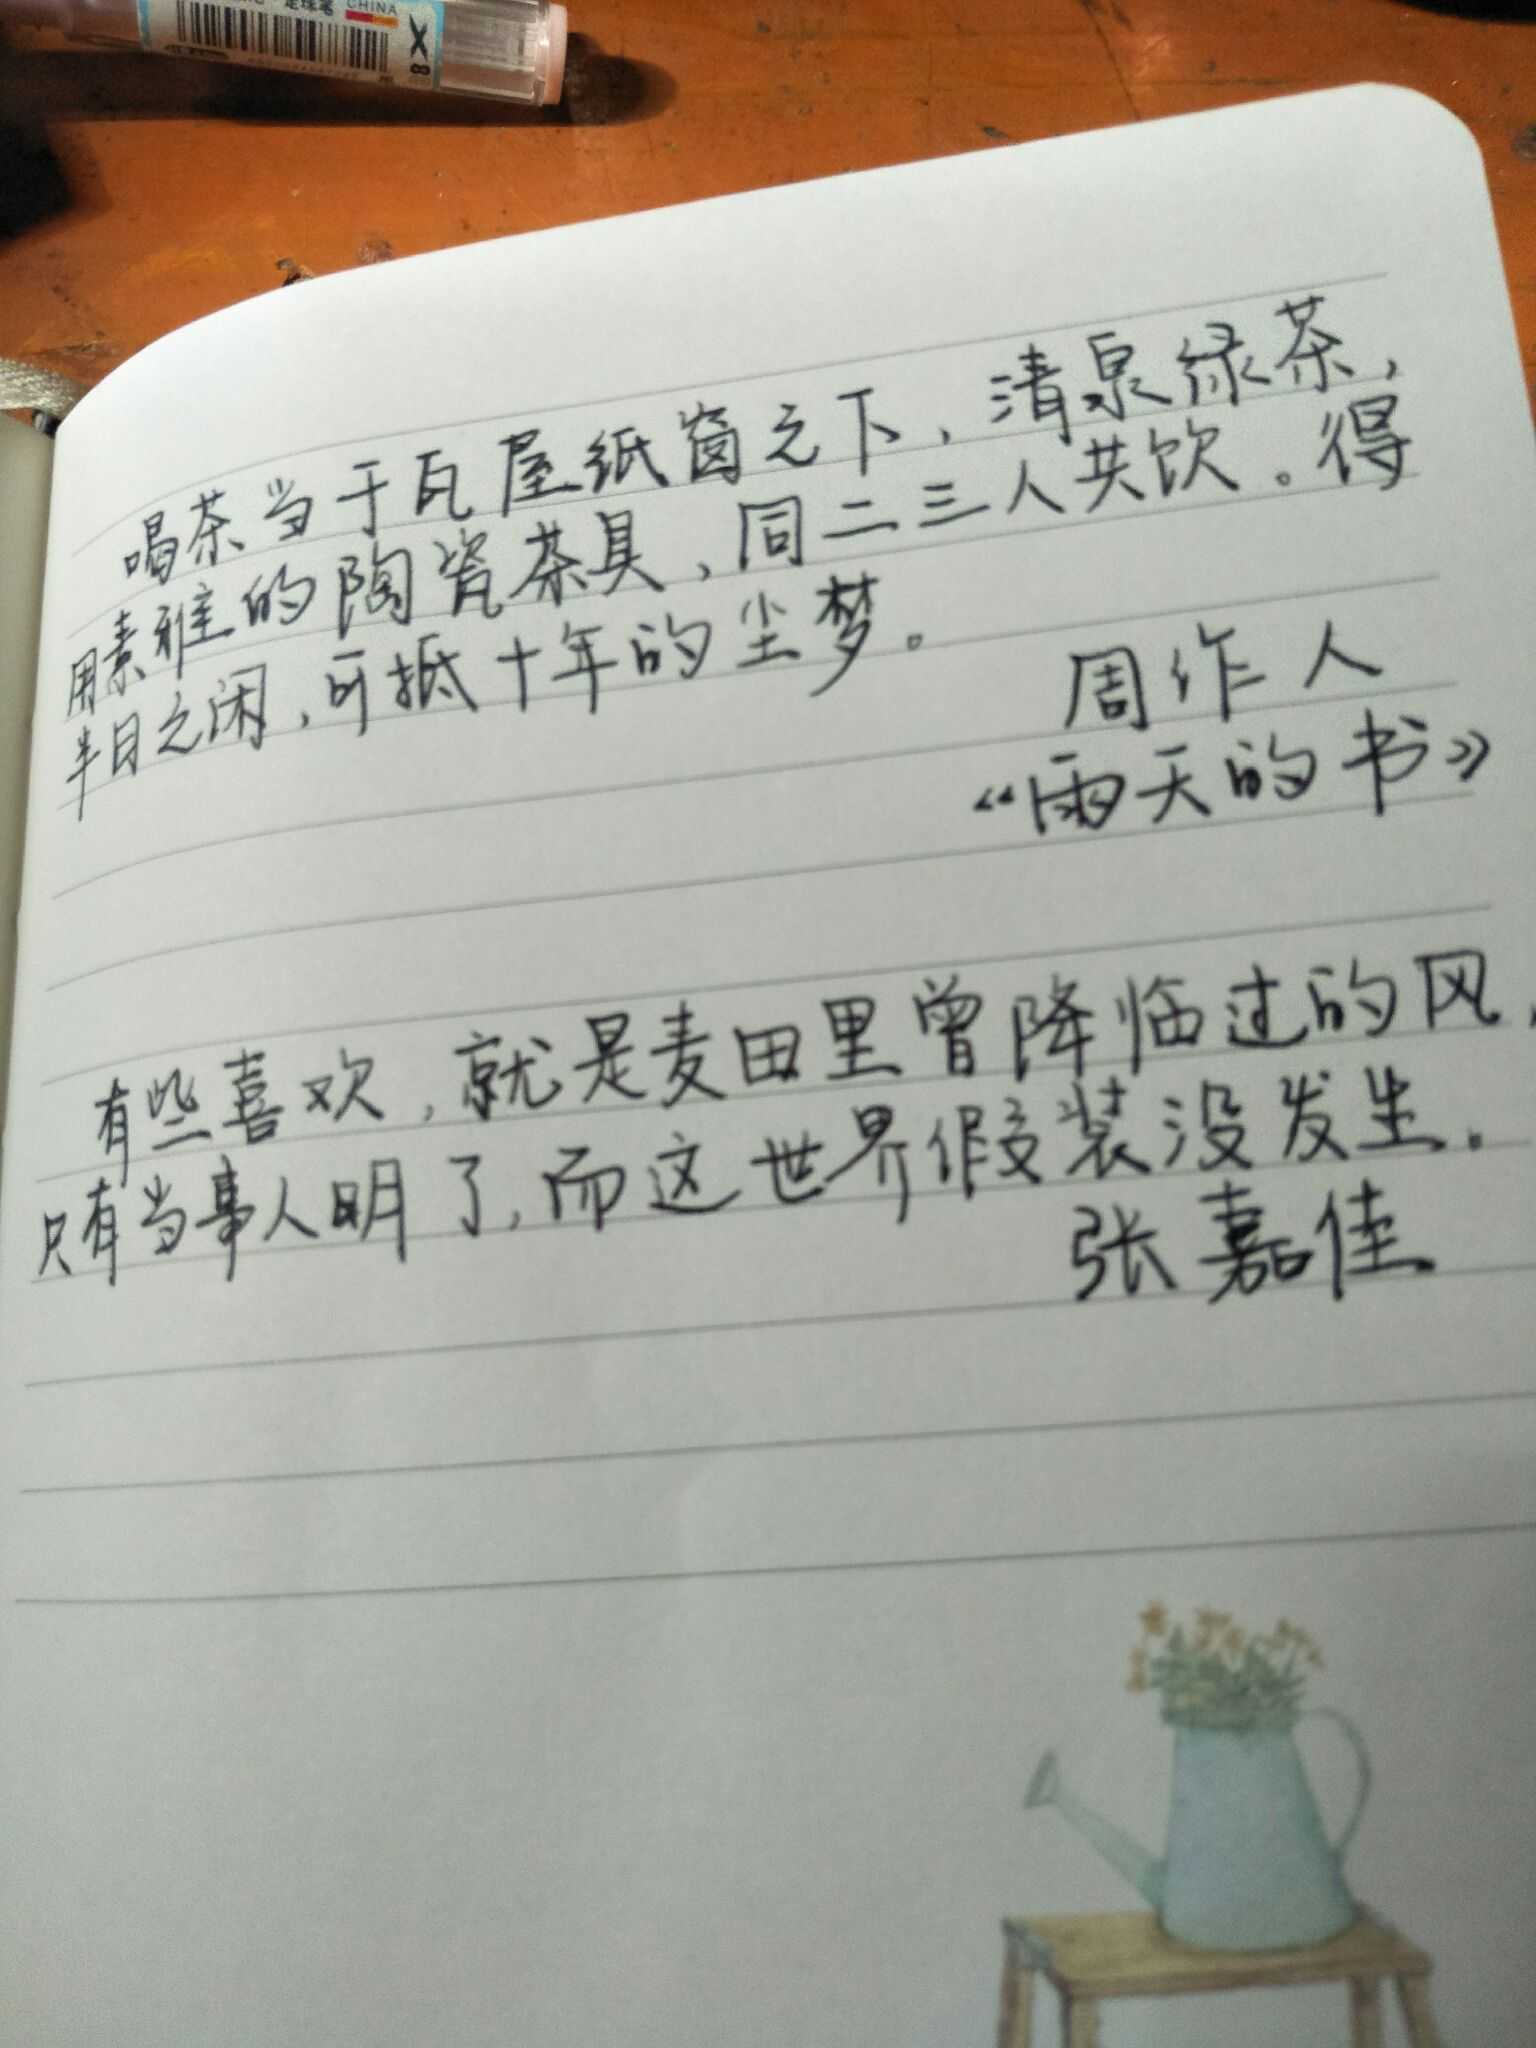 走珠笔 CHINA
X8
喝茶当于瓦屋纸窗之下,清泉绿茶,
用素雅的陶瓷茶具,同二三人共饮。得
半日之闲,可抵十年的尘梦。
周作人
《雨天的书》
有些喜欢,就是麦田里曾降临过的风,
只有当事人明了,而这世界假装没发生.
张嘉佳